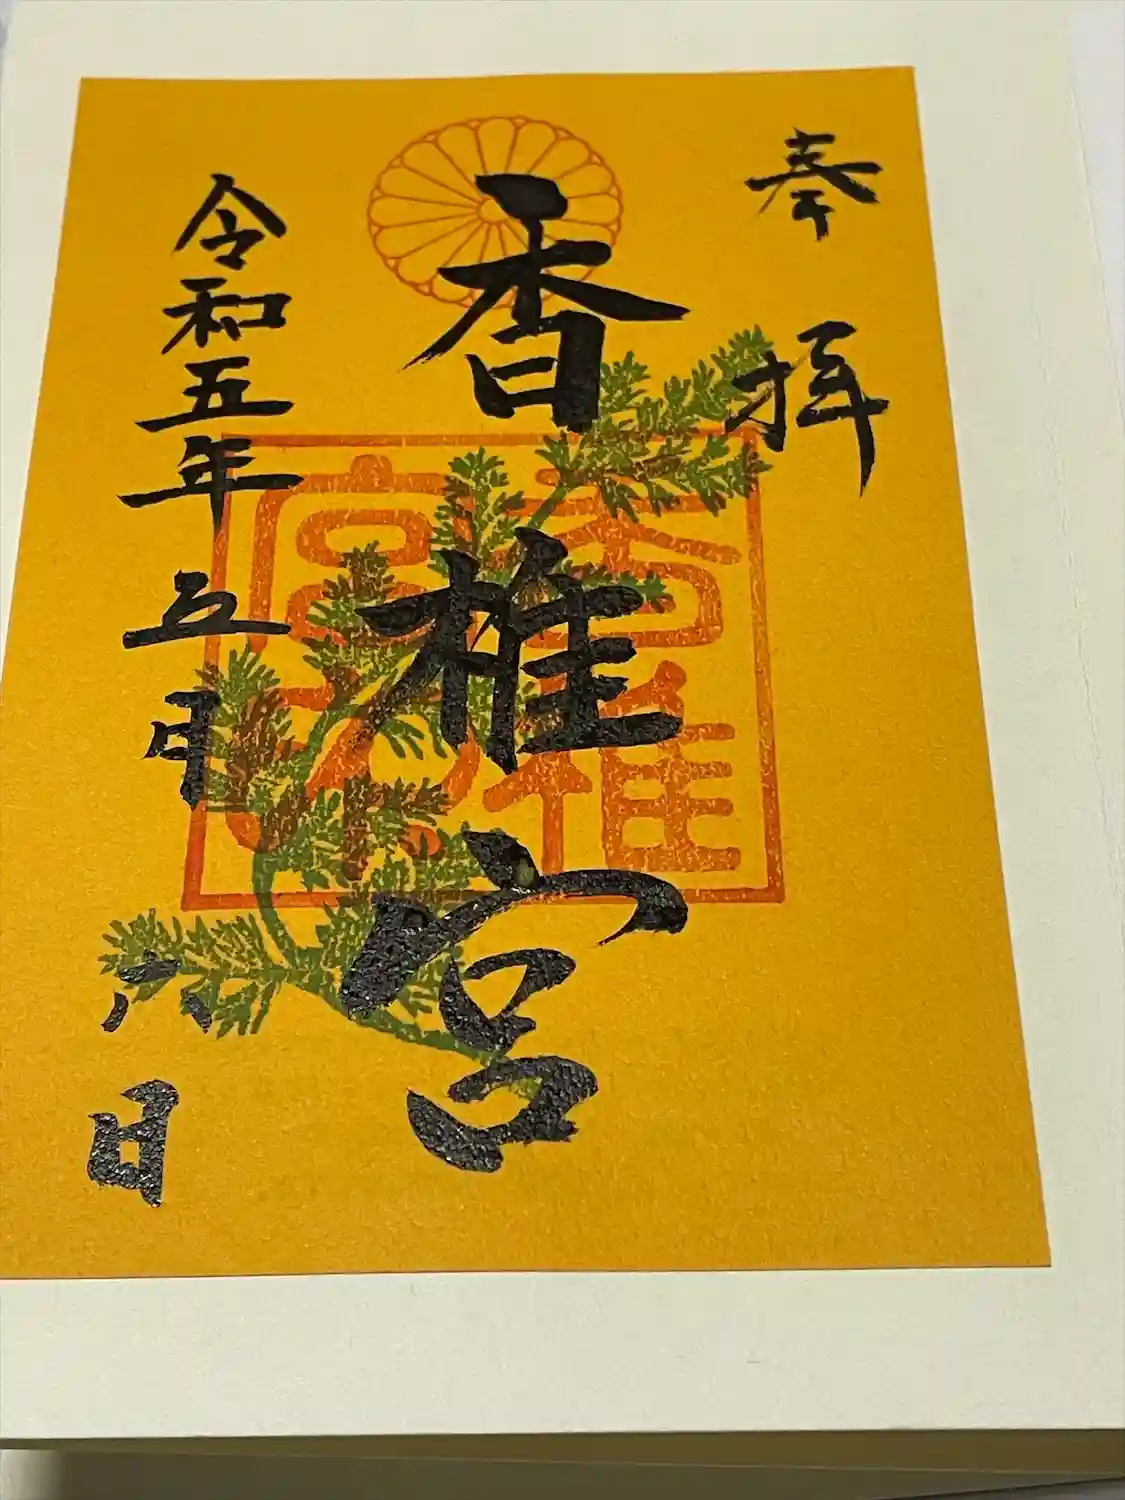 奉拝
香椎宮
香椎宮
令和五年五月六日